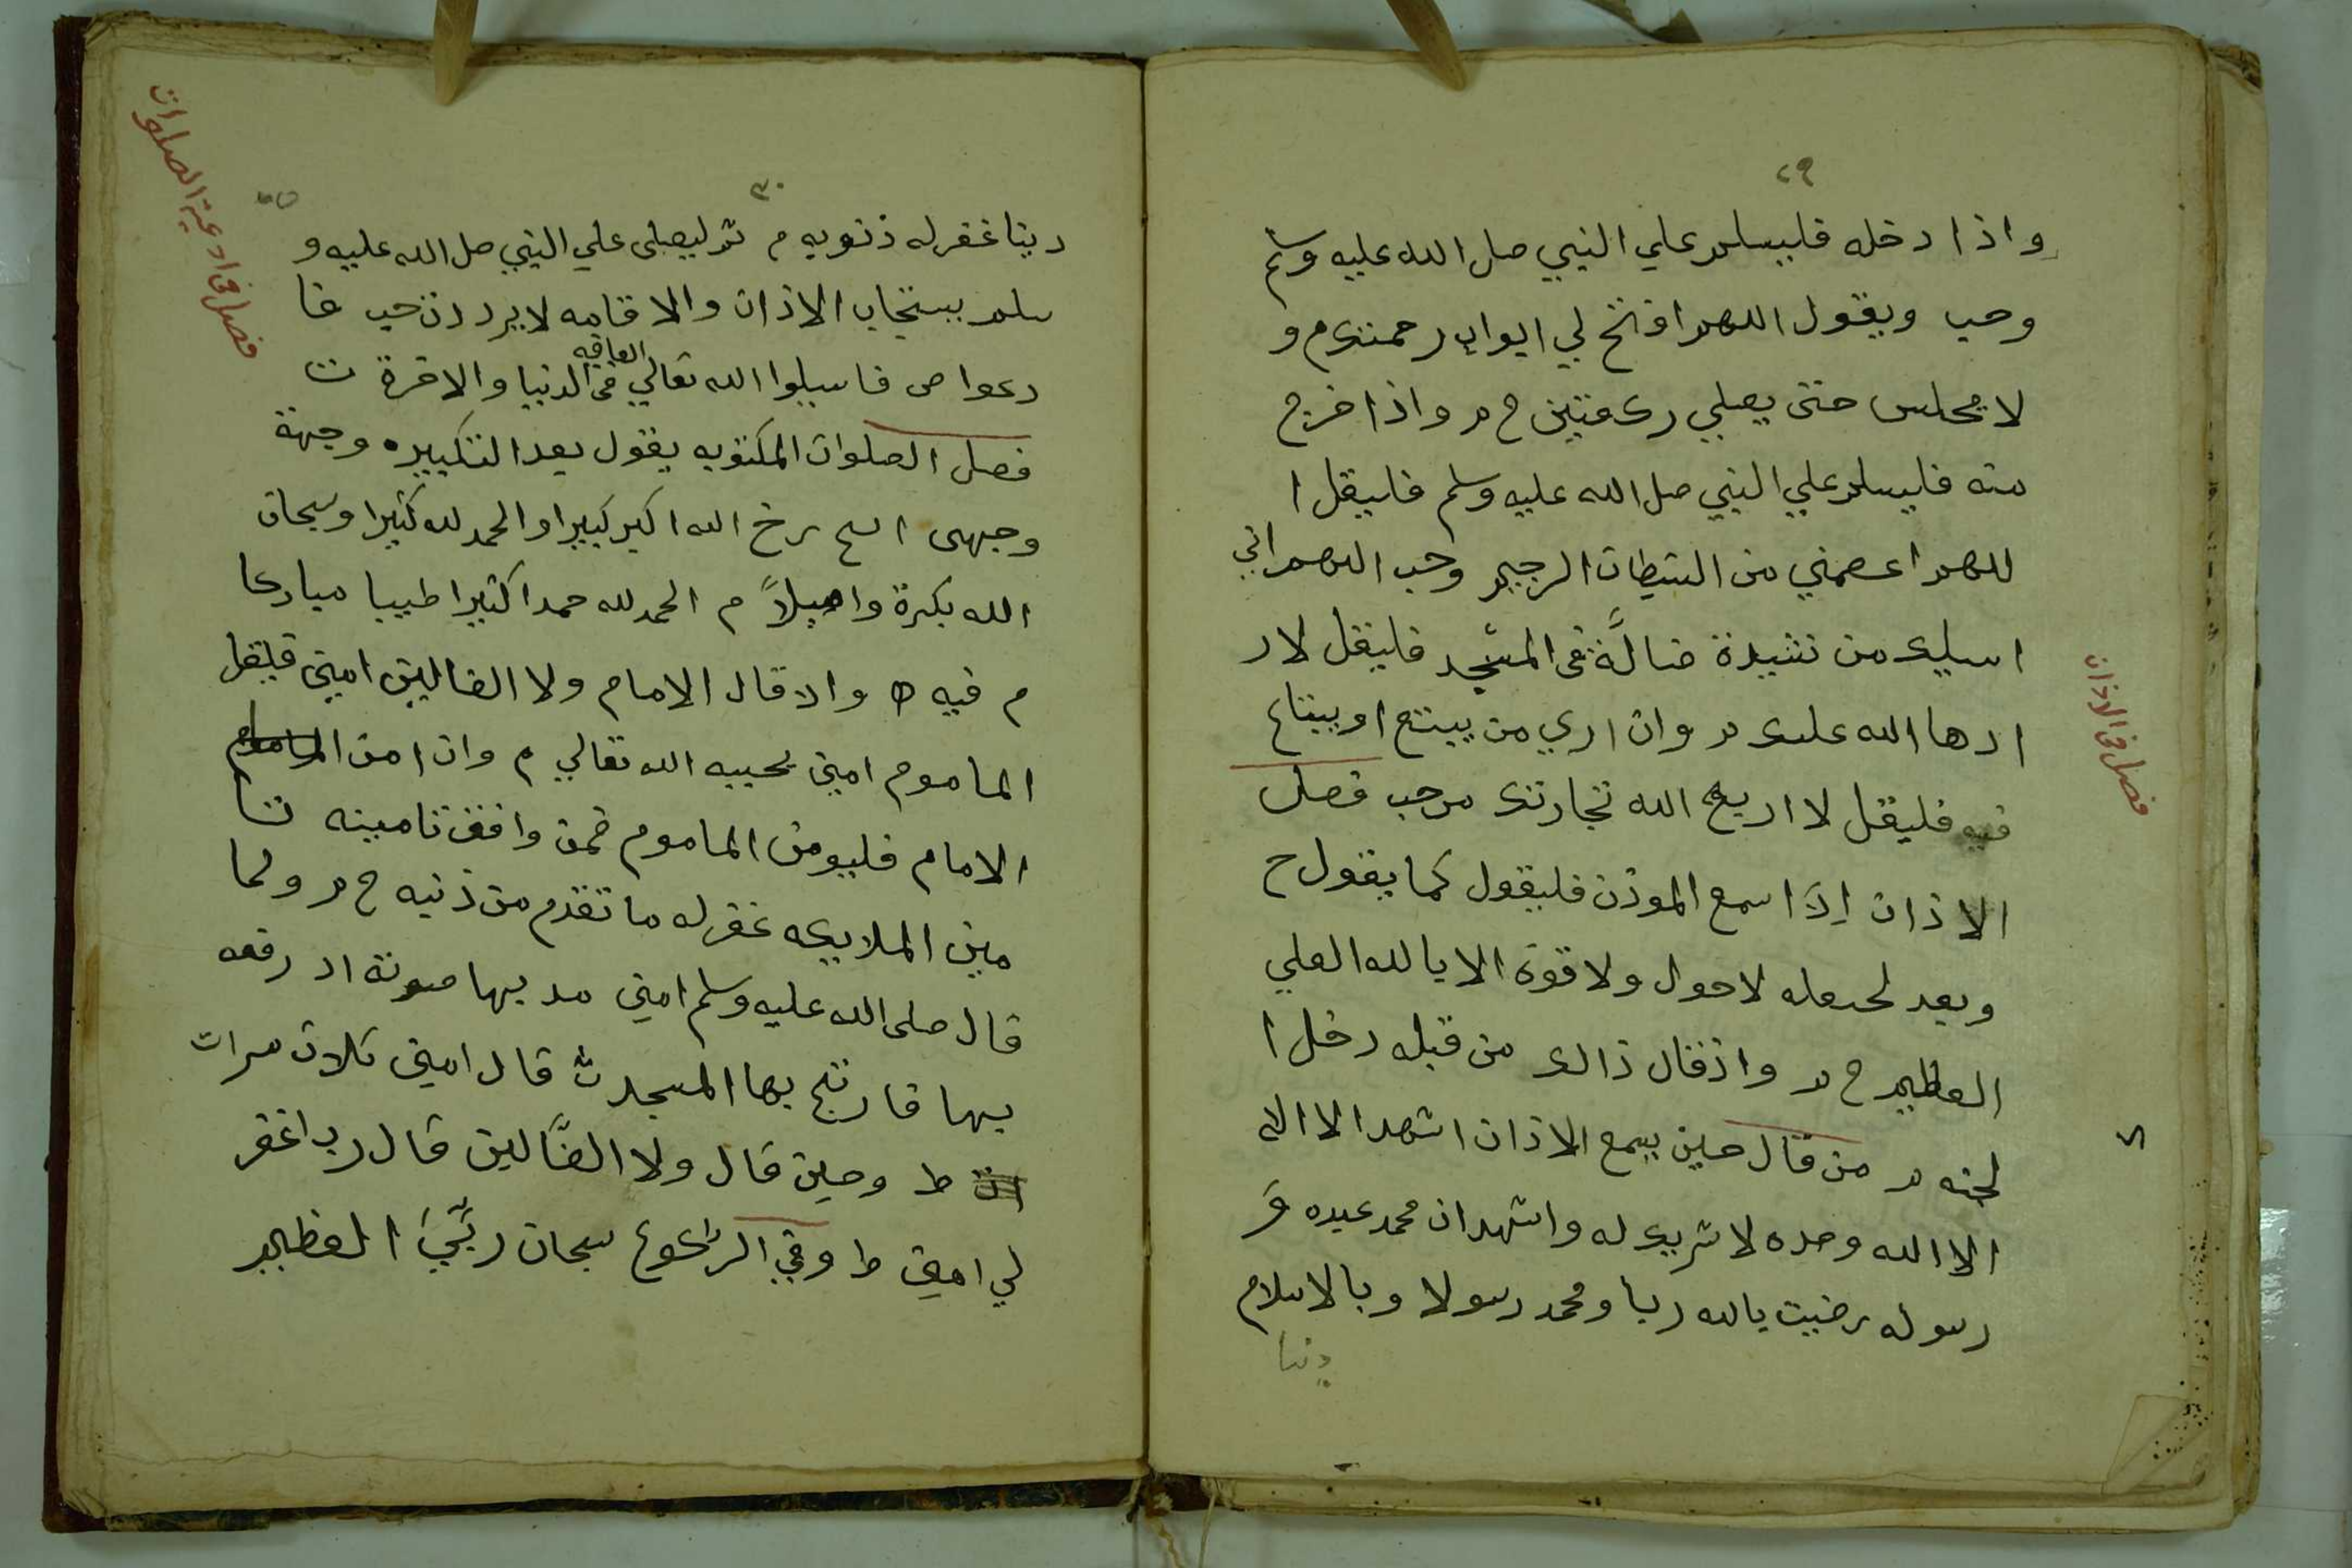 ٢٩
واذا دخله فليسلم علي النبي صل الله عليه وسلم
وحب ويقول اللهم افتح لي ابواب رحمتك م و
لا يجلس حتى يصلي ركعتين خ م واذا خرج
منه فليسلم علي النبي صل الله عليه وسلم فليقل ا
للهم اعصمني من الشيطان الرجيم وحب اللهم اني
اسيلك من نشيدة ضالَّة في المسجد فليقل لا ر
ادها الله عليك م وان اري من يبتع او يبتاع
فيه فليقل لا اربح الله تجارتك م حب فصل
الاذان اِذَا سمع الموذن فليقول كما يقول خ
وبعد لحيعله لا حول ولا قوة الا بالله العلي
العظيم خ م واذقال ذالك من قبله دخل ا
لجنه م من قال حين يسمع الاذان اشهد الا اله
الا الله وحده لا شريك له واشهد ان محمد عبده وَ
رسوله رضيت بالله ربا ومحمد رسولا وبالاسلام
دينا
فصل في الاذان
٣٠
دينا غفر له ذنوبه م ثم ليصلى علي النبي صل الله عليه و
سلم يستجاب الاذان والاقامه لا يرد دن حب فا
دعوا ص فاسيلوا الله تعالي العافيه في الدنيا والاخرة ت
فصل الصلوات المكتوبه يقول بعد التكبيره وجهة
وجهى الخ رخ الله اكبر كبيرا والحمد لله كثيرا وسبحان
الله بكرة واصيلاً م الحمد لله حمدا كثيرا طيبا مباركا
م فيه ط واذ قال الامام ولا الضالين امين فليقل
الماموم امين يحبيه الله تعالي م وان امن
الامام فليومن الماموم فمن وافق تامينه تا
مين الملايكه غفر له ما تقدم من ذنبه خ م ولما
قال صلى الله عليه وسلم امين مد بها صوته اد رفعه
بها فارتج بها المسجد ث قال امين ثلاث مرات
ط وحين قال ولا الضَّالين قال رب اغفر
لي امين ط وفي الركوع سبحان ربّيَ العظيم
فصل في ادعية الصلوات